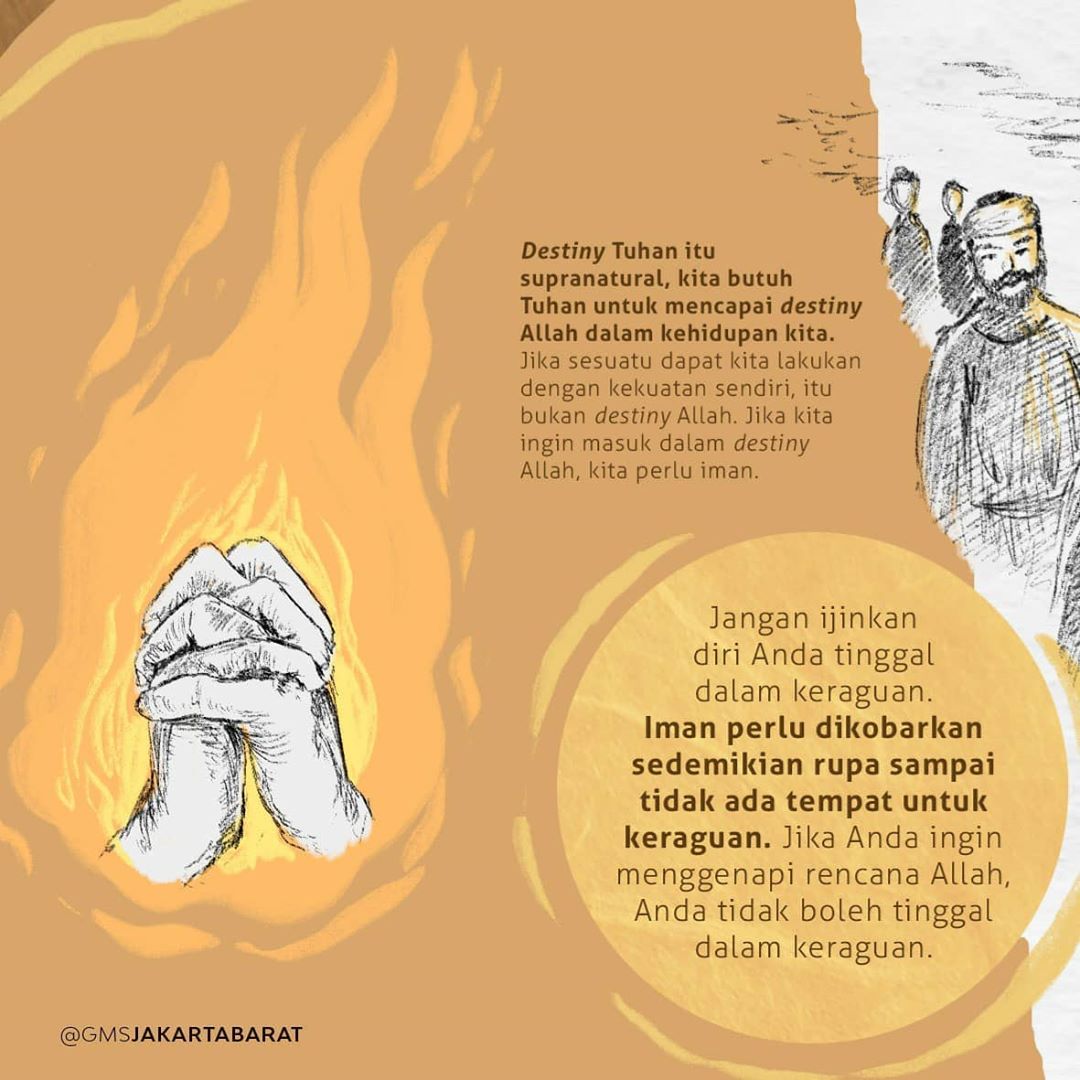 Destiny Tuhan itu
supranatural, kita butuh
Tuhan untuk mencapai destiny
Allah dalam kehidupan kita.
Jika sesuatu dapat kita lakukan
dengan kekuatan sendiri, itu
bukan destiny Allah. Jika kita
ingin masuk dalam destiny
Allah, kita perlu iman.
Jangan ijinkan
diri Anda tinggal
dalam keraguan.
Iman perlu dikobarkan
sedemikian rupa sampai
tidak ada tempat untuk
keraguan. Jika Anda ingin
menggenapi rencana Allah,
Anda tidak boleh tinggal
dalam keraguan.
@GMSJAKARTABARAT